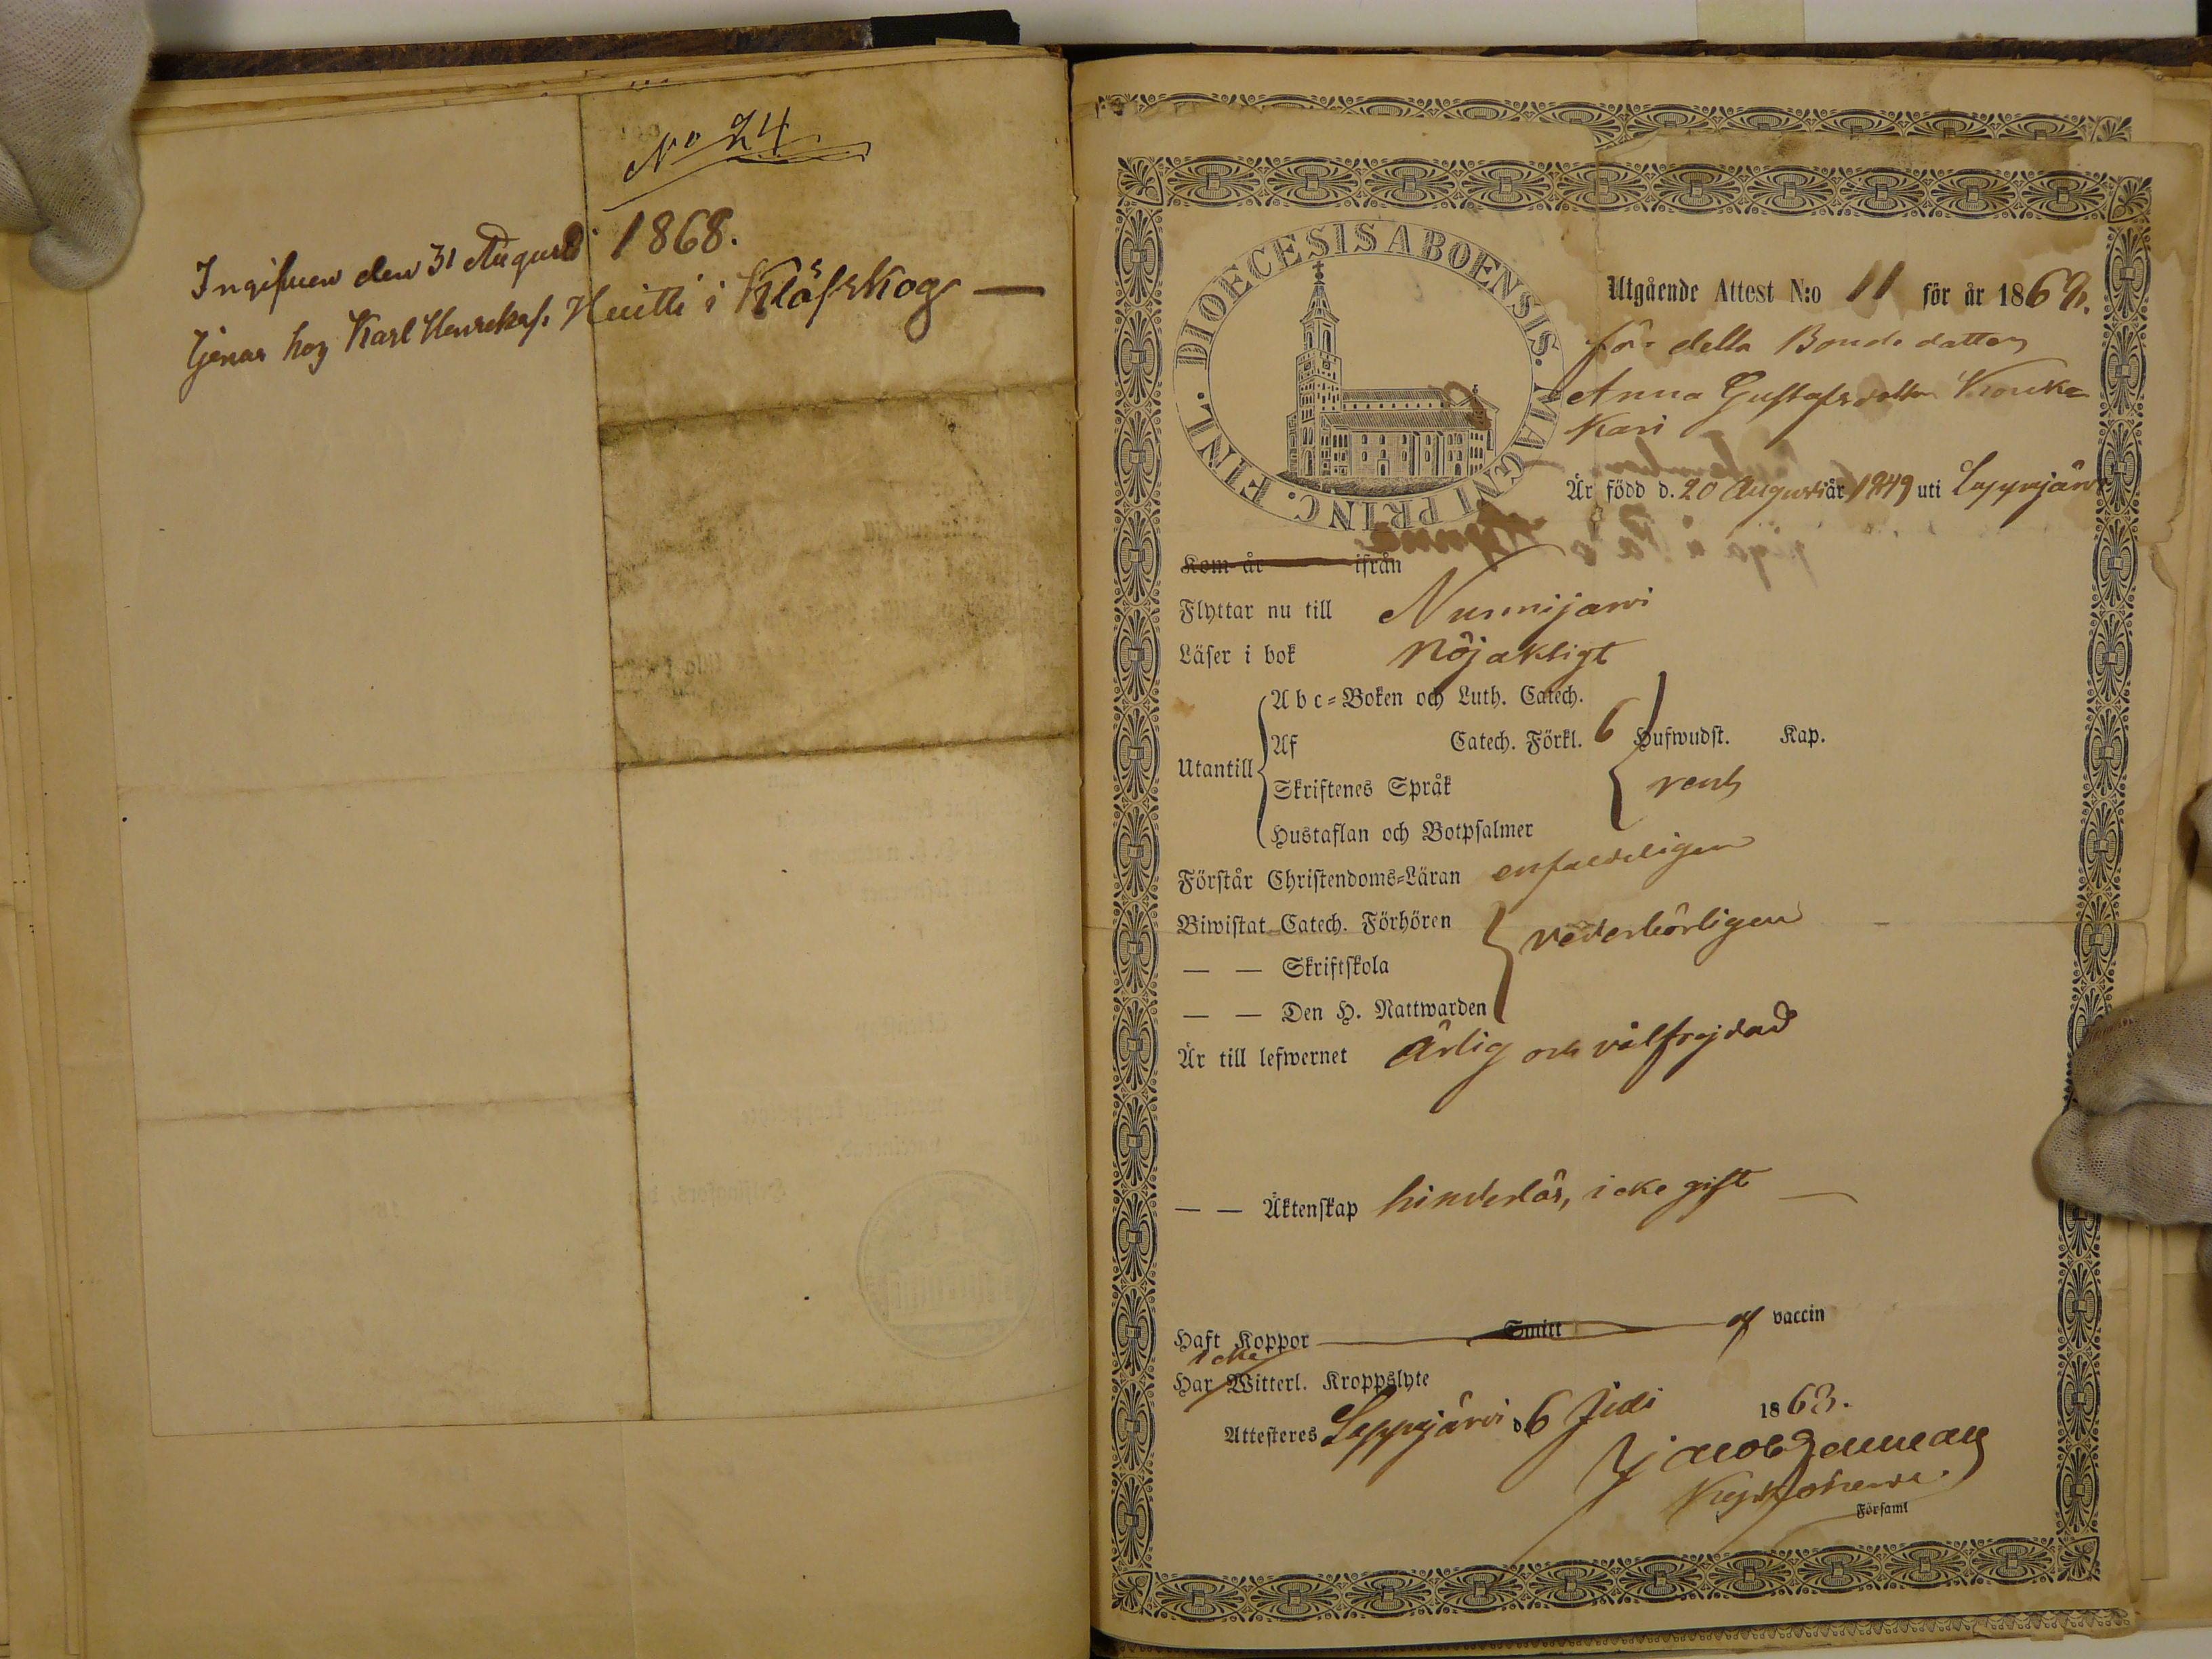 No 24
Ingifven den 31 Augusti 1868.
tjenar hos Karl Henrikss. Huitti i Klöfskog —
DIOECESIS ABOENSIS. MAGNI PRINC. FINL.
Utgående Attest N:o 11 för år 1868.
för della Bonde dattern
Anna Gustafsdotter Kouka
Kari
Är född d. 20 Augusti år 1849 uti Lappajärvi
Kom år ifrån
Flyttar nu till Nurmijärvi
Läser i bok Nöjaktigt
Utantill
Abc-Boken och Luth. Catech.
Af Catech. Förkl. 6 Hufwudst. Kap.
Skriftenes Språk
Hustaflan och Botpsalmer
Förstår Christendoms-Läran enfaldeligen
Biwistat Catech. Förhören vederbörligen
— — Skriftskola
— — Den H. Nattwarden
Är till lefwernet Ärlig och välfrejdad
— — Äktenskap hinderlös, icke gift —
Haft Koppor Smitt af vaccin
icke
Har Witterl. Kroppslyte
Attesteres Lappajärvi d 6 Juli 1868.
Församl